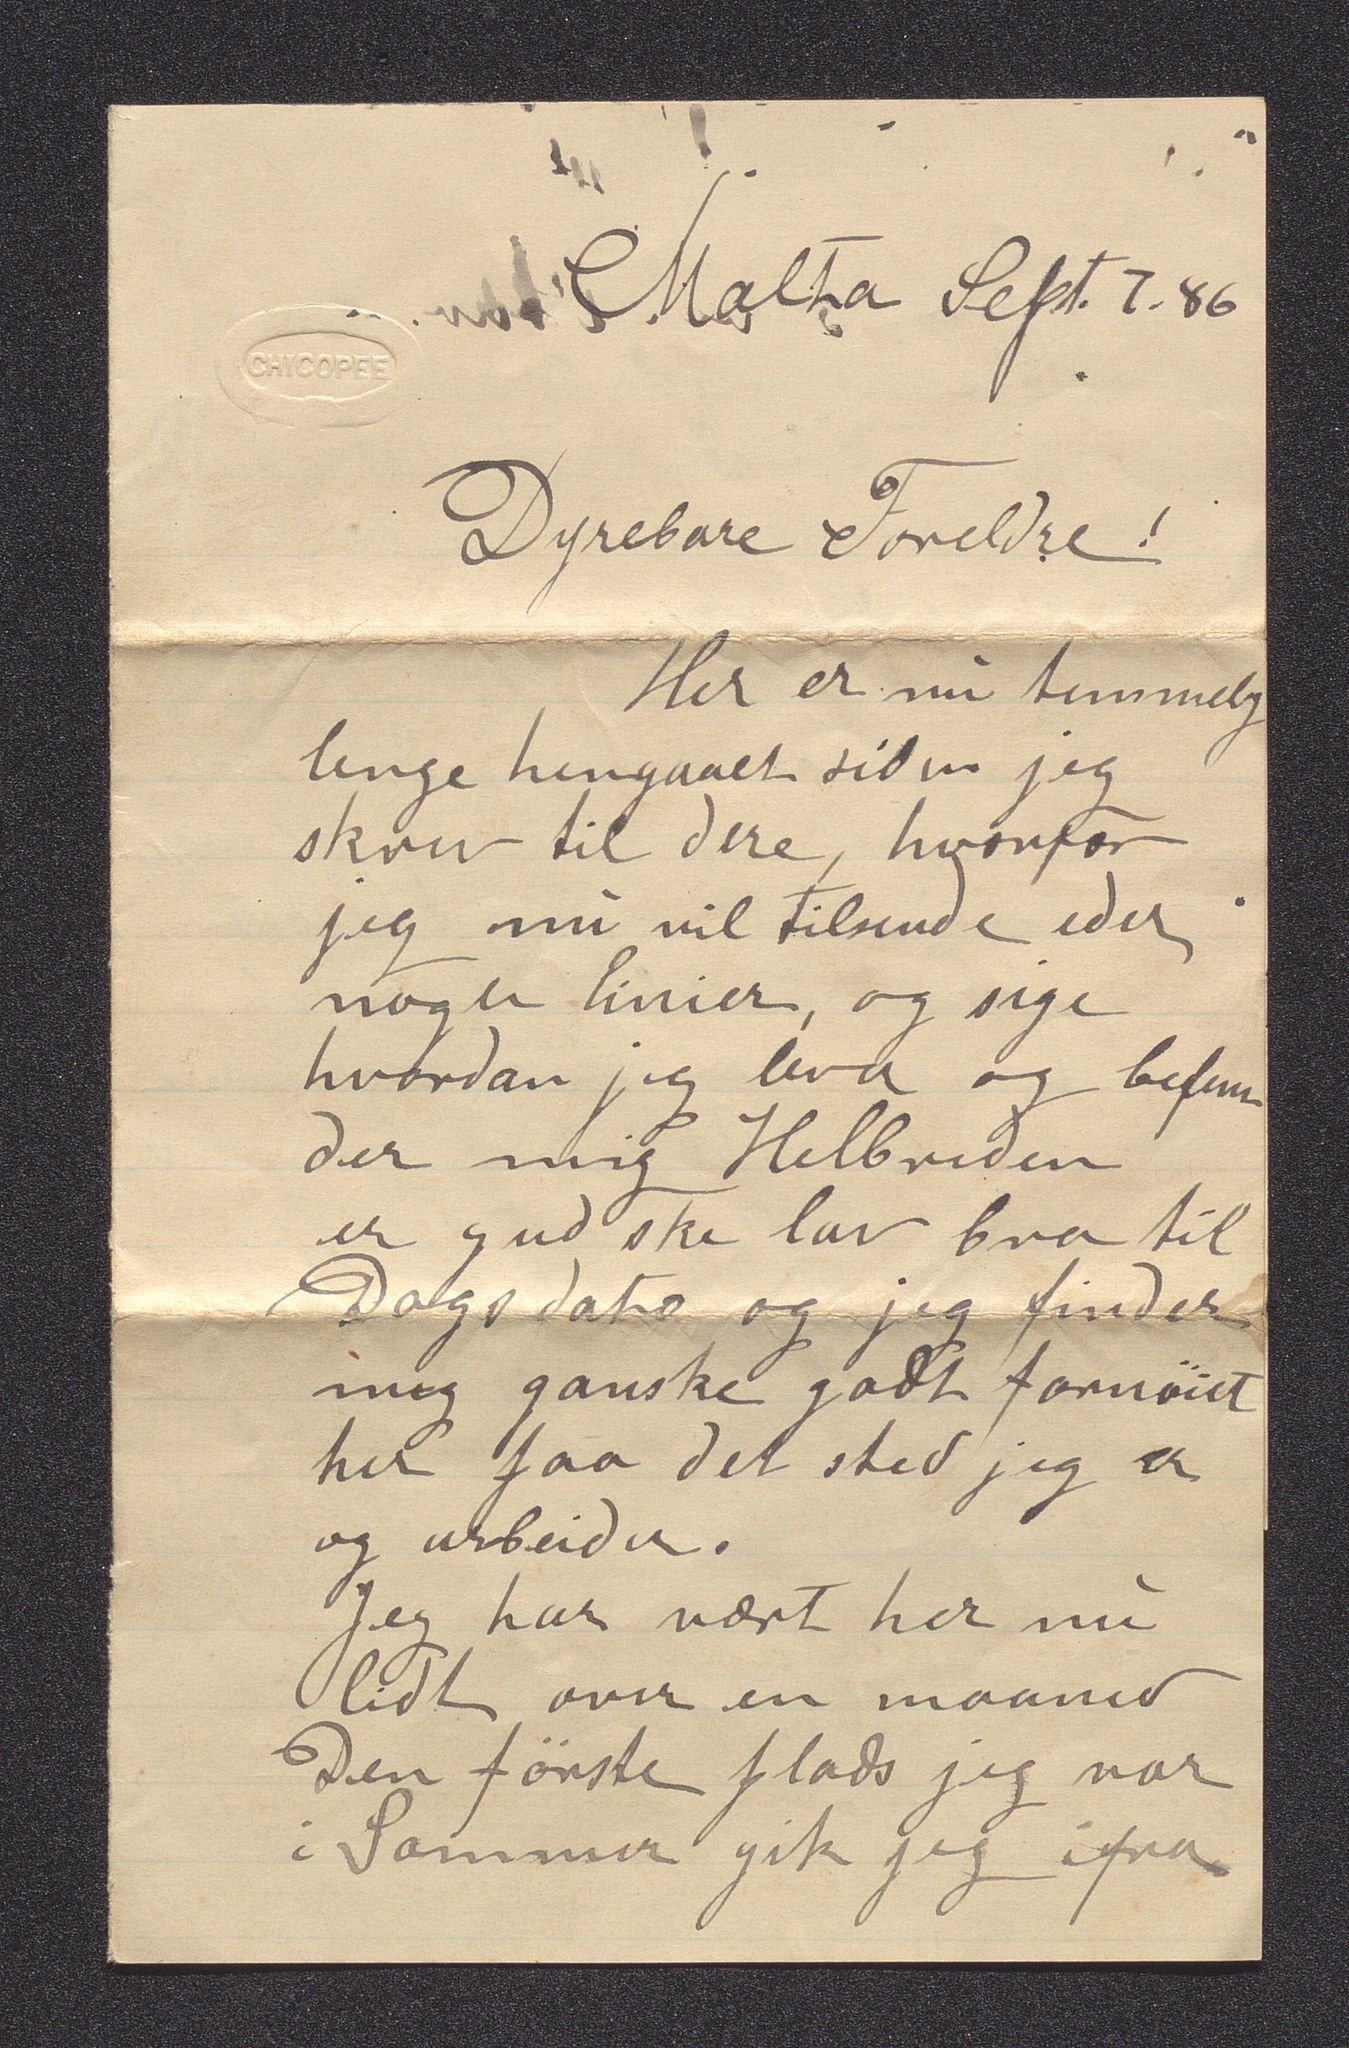 Malta Sept. 7. 86
CHICOPEE
Dyrebare Foreldre!
Her er nù temmelig
lenge hengaaet siden jeg
skrev til dere, hvorfor
jeg nù vil tilsende eder
nogle linier, og sige
hvordan jeg lever og befin
der mig Helbreden
er gud ske lov bra til
Dags dato og jeg finder
mig ganske godt fornöiet
her paa det sted jeg er
og arbeider.
Jeg har vært her nù
lidt over en maaned
Den förste plads jeg var
i Sommer gik jeg ifra